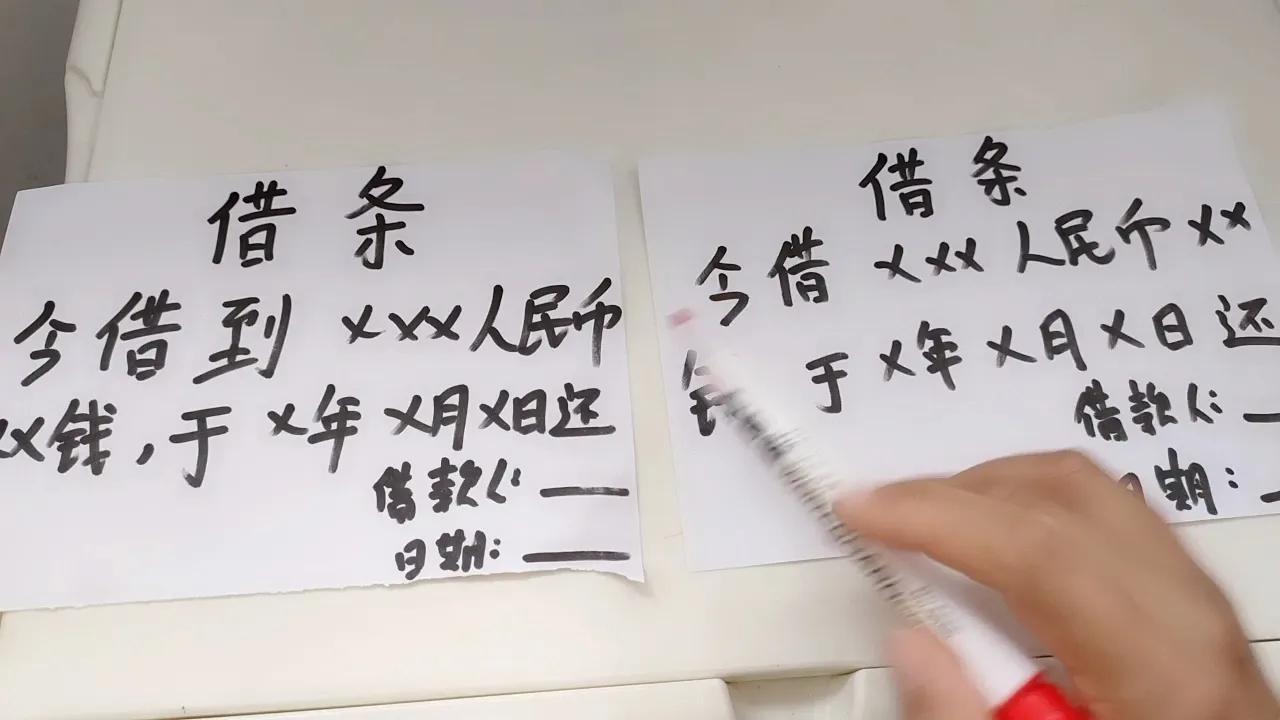 借条
今借到 xxx人民币
xx钱,于 x年 x月x日还
借款人: __
日期: __
借条
今借 xxx 人民币 xx
钱 于 x年 x月 x日 还
借款人: __
日期: __